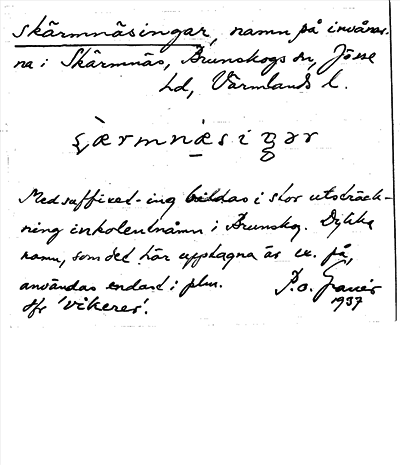 skärmnäsingar, namn på invånar-
na i Skärmnäs, Brunskogs sn, Jösse
hd, Värmlands l.
Med suffixet -ing bildas i stor utsträck-
ning inkolentnamn i Brunskog. Dylika
namn, som det här upptagna är ex. på,
användas endast i plur.
Jfr 'vikerer'.
P.o.
1937